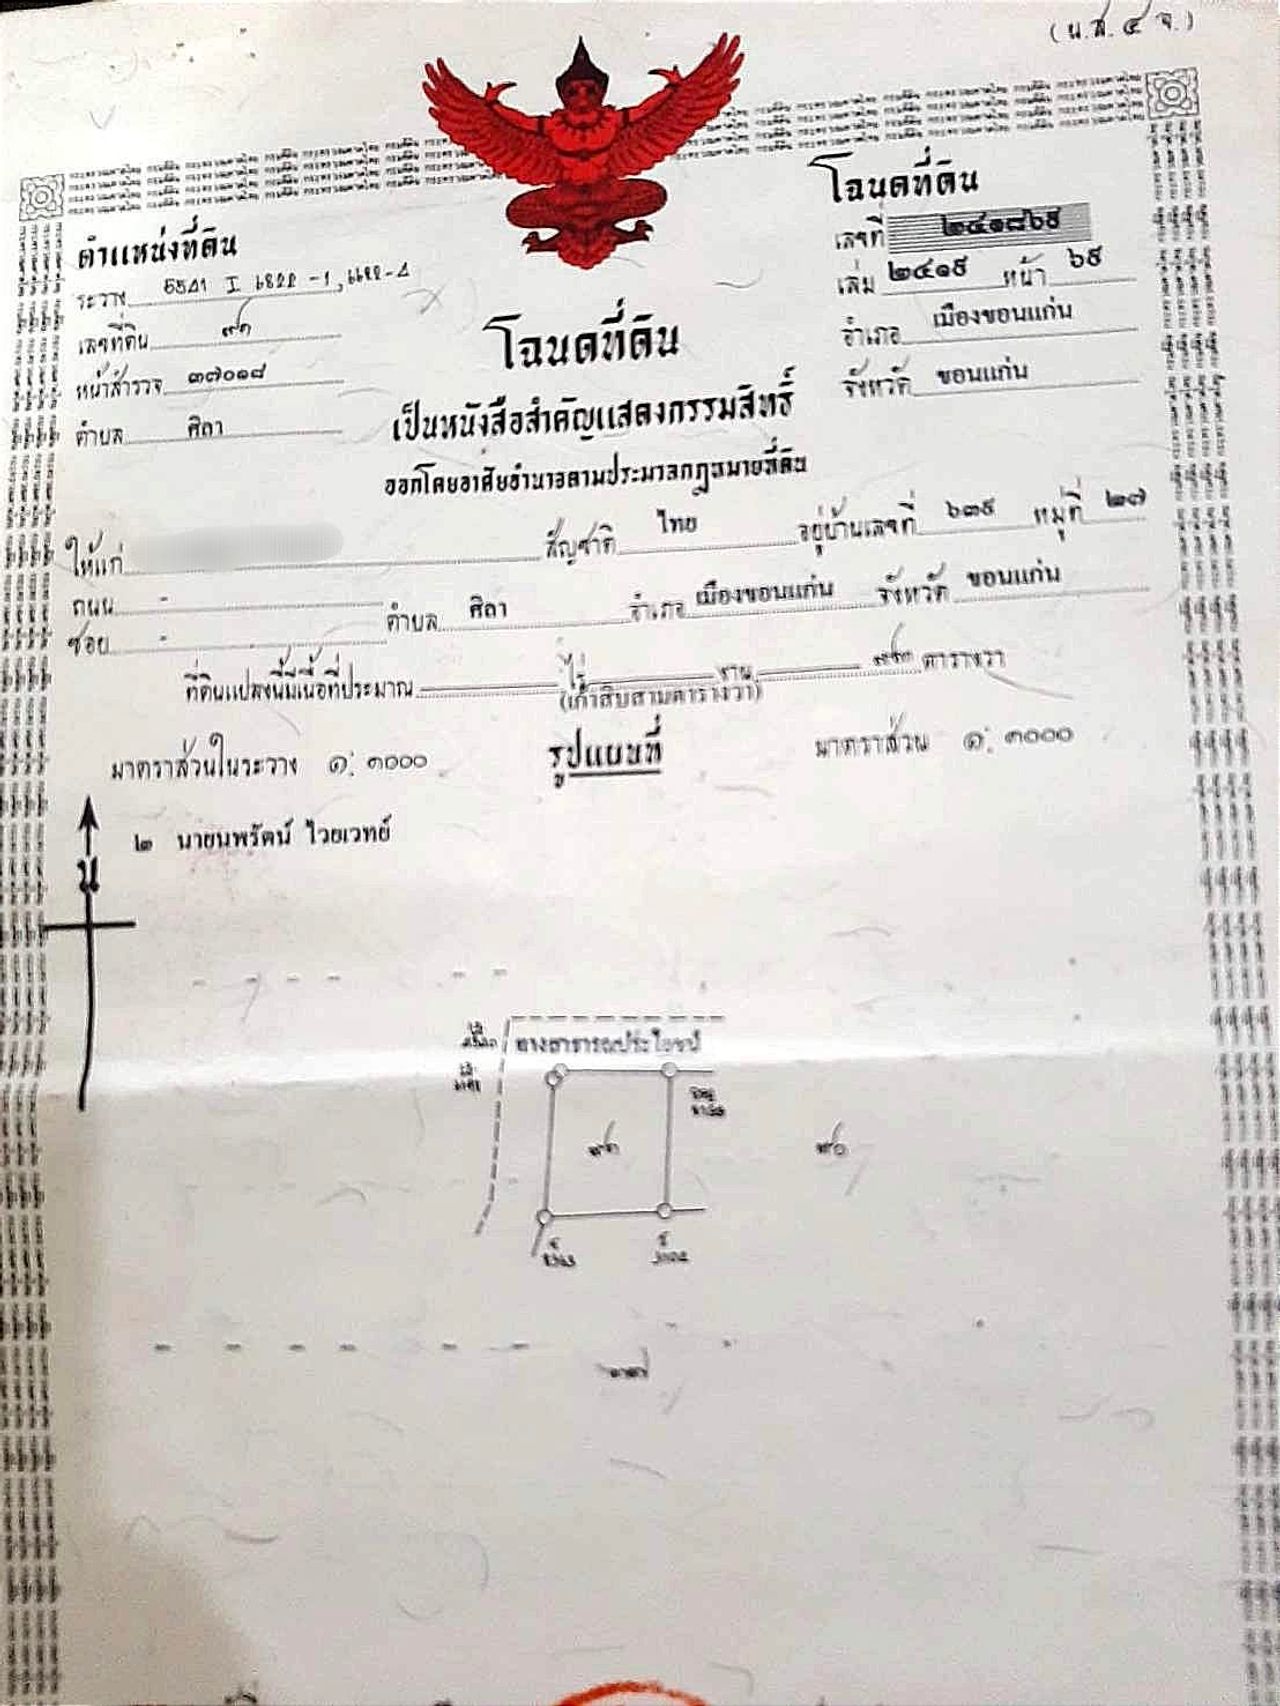 (น.ส.๔ จ.)
โฉนดที่ดิน
เลขที่ ๒๔๑๘๖๕
เล่ม ๒๔๑๙ หน้า ๖๕
อำเภอ เมืองขอนแก่น
จังหวัด ขอนแก่น
ตำแหน่งที่ดิน
ระวาง 5541 I
เลขที่ดิน
หน้าสำรวจ ๓๗๐๑๘
ตำบล ศิลา
โฉนดที่ดิน
เป็นหนังสือสำคัญแสดงกรรมสิทธิ์
ออกโดยอาศัยอำนาจตามประมวลกฎหมายที่ดิน
ให้แก่ สัญชาติ ไทย อยู่บ้านเลขที่ ๖๓๕ หมู่ที่ ๒๗
ถนน - ตำบล ศิลา อำเภอ เมืองขอนแก่น จังหวัด ขอนแก่น
ซอย -
ที่ดินแปลงนี้มีเนื้อที่ประมาณ ไร่ งาน ๙๓ ตารางวา
(เก้าสิบสามตารางวา)
มาตราส่วนในระวาง ๑:๑๐๐๐ รูปแผนที่ มาตราส่วน ๑:๑๐๐๐
น
๒ นายนพรัตน์ ไวยเวทย์
ทางสาธารณประโยชน์
๙๐